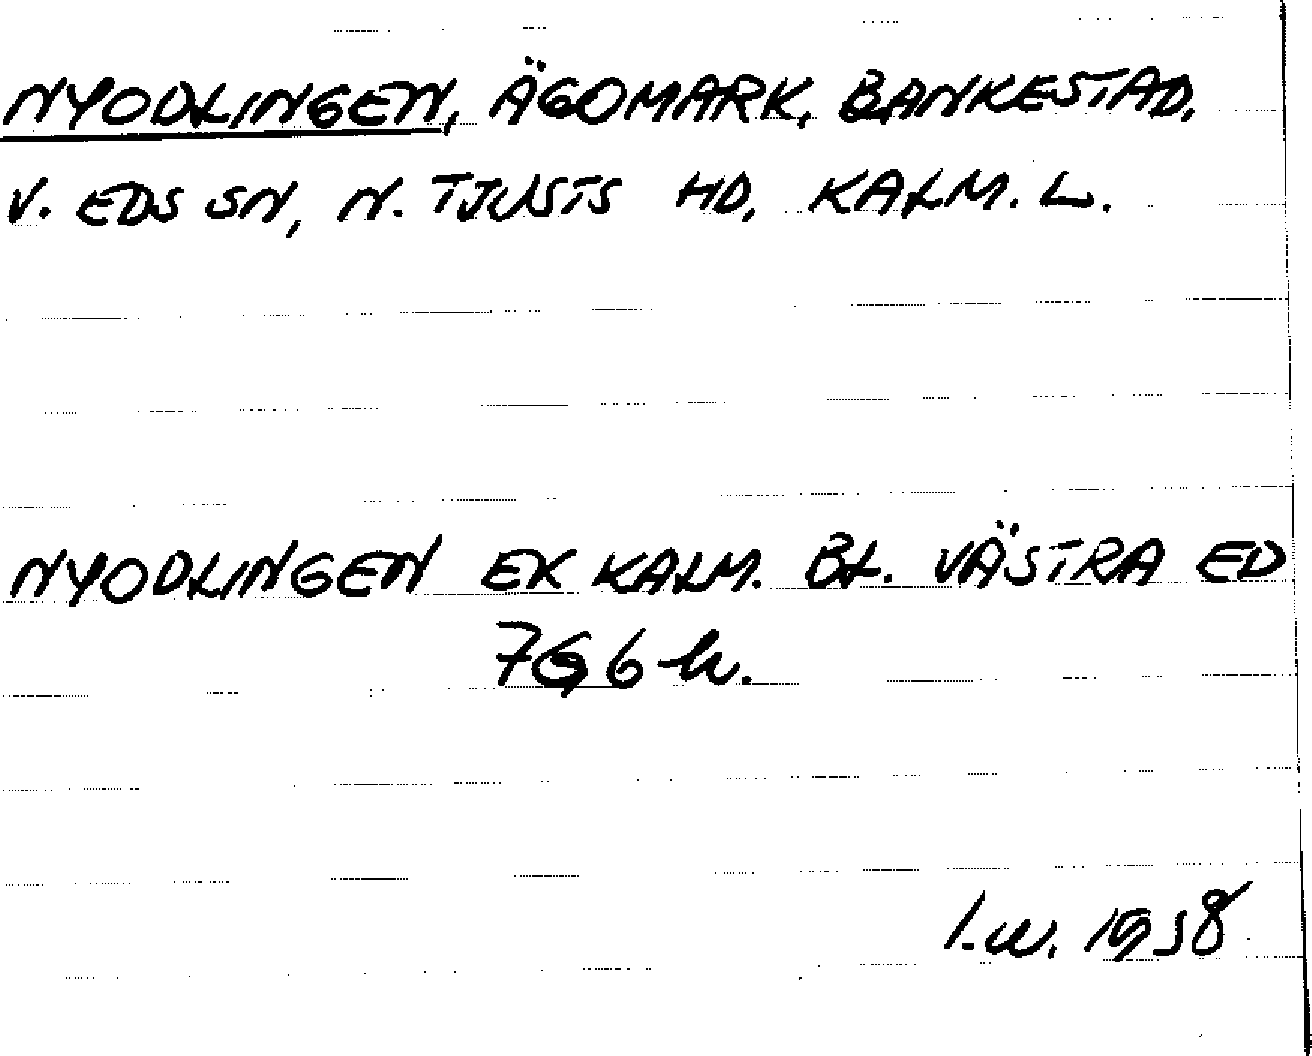 NYODLINGEN, ÄGOMARK, BANKESTAD,
V. EDS SN, N. TJUSTS HD, KALM. L.
NYODLINGEN EK KALM. BL. VÄSTRA ED
7G6h.
I.W. 1958